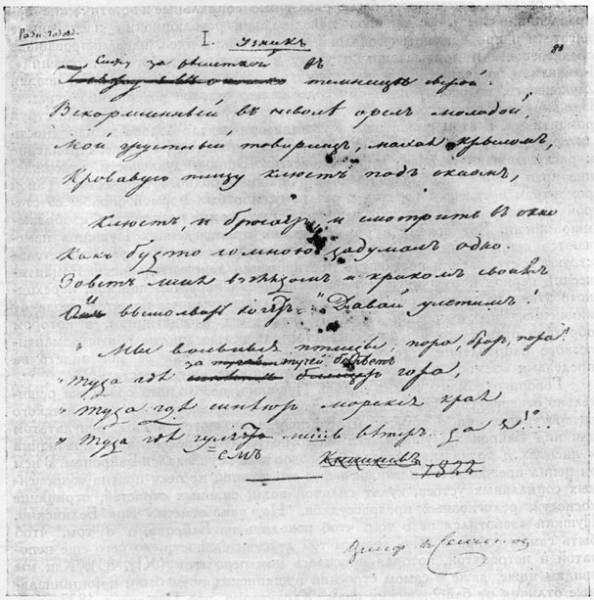 I. Узникъ
Сижу за решеткой въ
темницѣ сырой.
Вскормленный въ неволѣ орелъ молодой,
Мой грустный товарищъ, махая крыломъ,
Кровавую пищу клюетъ подъ окномъ,
Клюетъ, и бросаетъ, и смотритъ въ окно
Какъ будто со мною задумалъ одно.
Зоветъ меня взглядомъ и крикомъ своимъ
И вымолвить хочетъ: "Давай улетимъ!
" Мы вольныя птицы; пора, братъ, пора!
за тучей бѣлѣетъ
" Туда гдѣ гора,
" Туда гдѣ синѣютъ морскіе края
" Туда гдѣ гуляемъ лишь вѣтръ да я!"...
емъ
Кишиневъ 1822